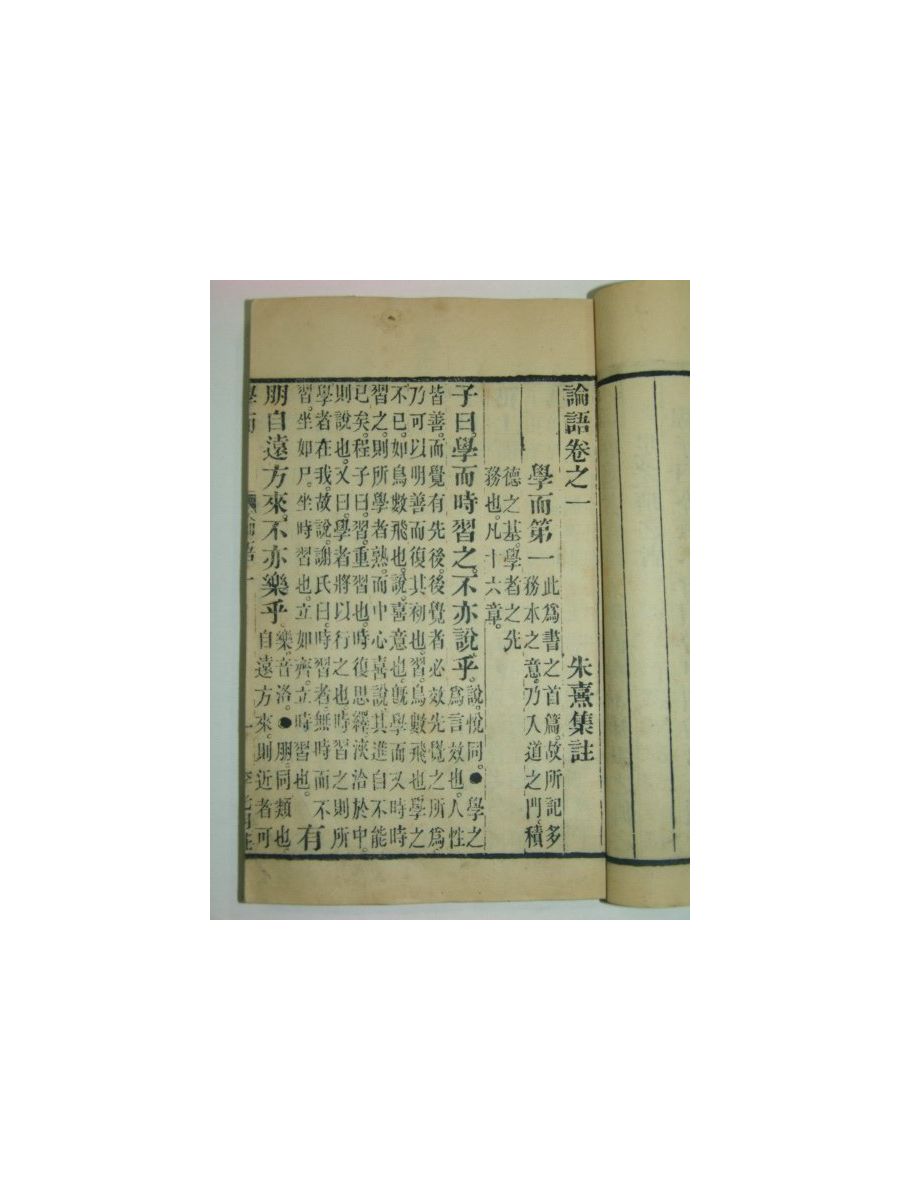 論語卷之一　朱熹集註
學而第一
此爲書之首篇。故所記多
務本之意。乃入道之門。積
德之基。學者之先
務也。凡十六章。
子曰。學而時習之。不亦說乎。
說。悅同。●學之
爲言效也。人性
皆善。而覺有先後。後覺者必效先覺之所爲
乃可以明善而復其初也。習。鳥數飛也。學之
不已。如鳥數飛也。說。喜意也。旣學而又時時
習之。則所學者熟。而中心喜說。其進自不能
已矣。程子曰。習。重習也。時復思繹。浹洽於中。
則說也。又曰。學者將以行之也。時習之。則所
學者在我。故說。謝氏曰。時習者。無時而不
習。坐如尸。坐時習也。立如齊。立時習也。
有
朋自遠方來。不亦樂乎。
樂。音洛。●朋。同類也。
自遠方來。則近者可